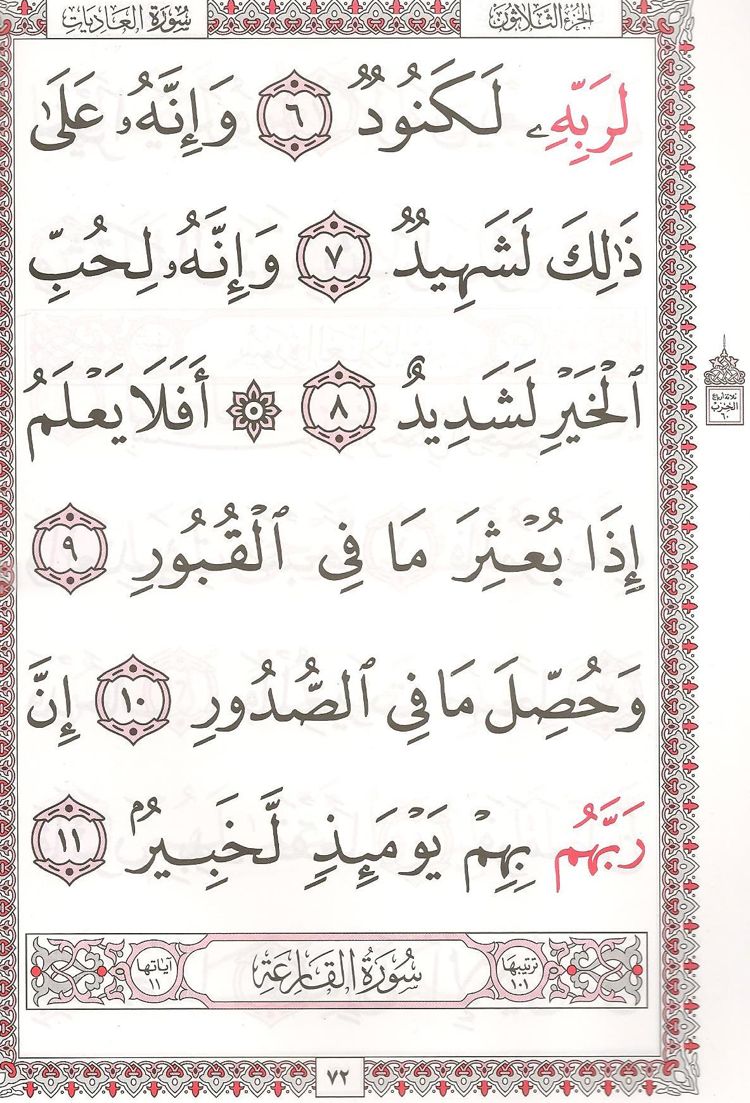 الجزء الثلاثون
سورة العاديات
لِرَبِّهِۦ لَكَنُودٌ ٦ وَإِنَّهُۥ عَلَىٰ
ذَٰلِكَ لَشَهِيدٌ ٧ وَإِنَّهُۥ لِحُبِّ
ٱلْخَيْرِ لَشَدِيدٌ ٨ ۞ أَفَلَا يَعْلَمُ
ثلاثة أرباع
الحزب
٦٠
إِذَا بُعْثِرَ مَا فِى ٱلْقُبُورِ ٩
وَحُصِّلَ مَا فِى ٱلصُّدُورِ ١٠ إِنَّ
رَبَّهُم بِهِمْ يَوْمَئِذٍ لَّخَبِيرٌۢ ١١
ترتيبها
١٠١
سُورَةُ القَارِعَةِ
آياتها
١١
٧٢